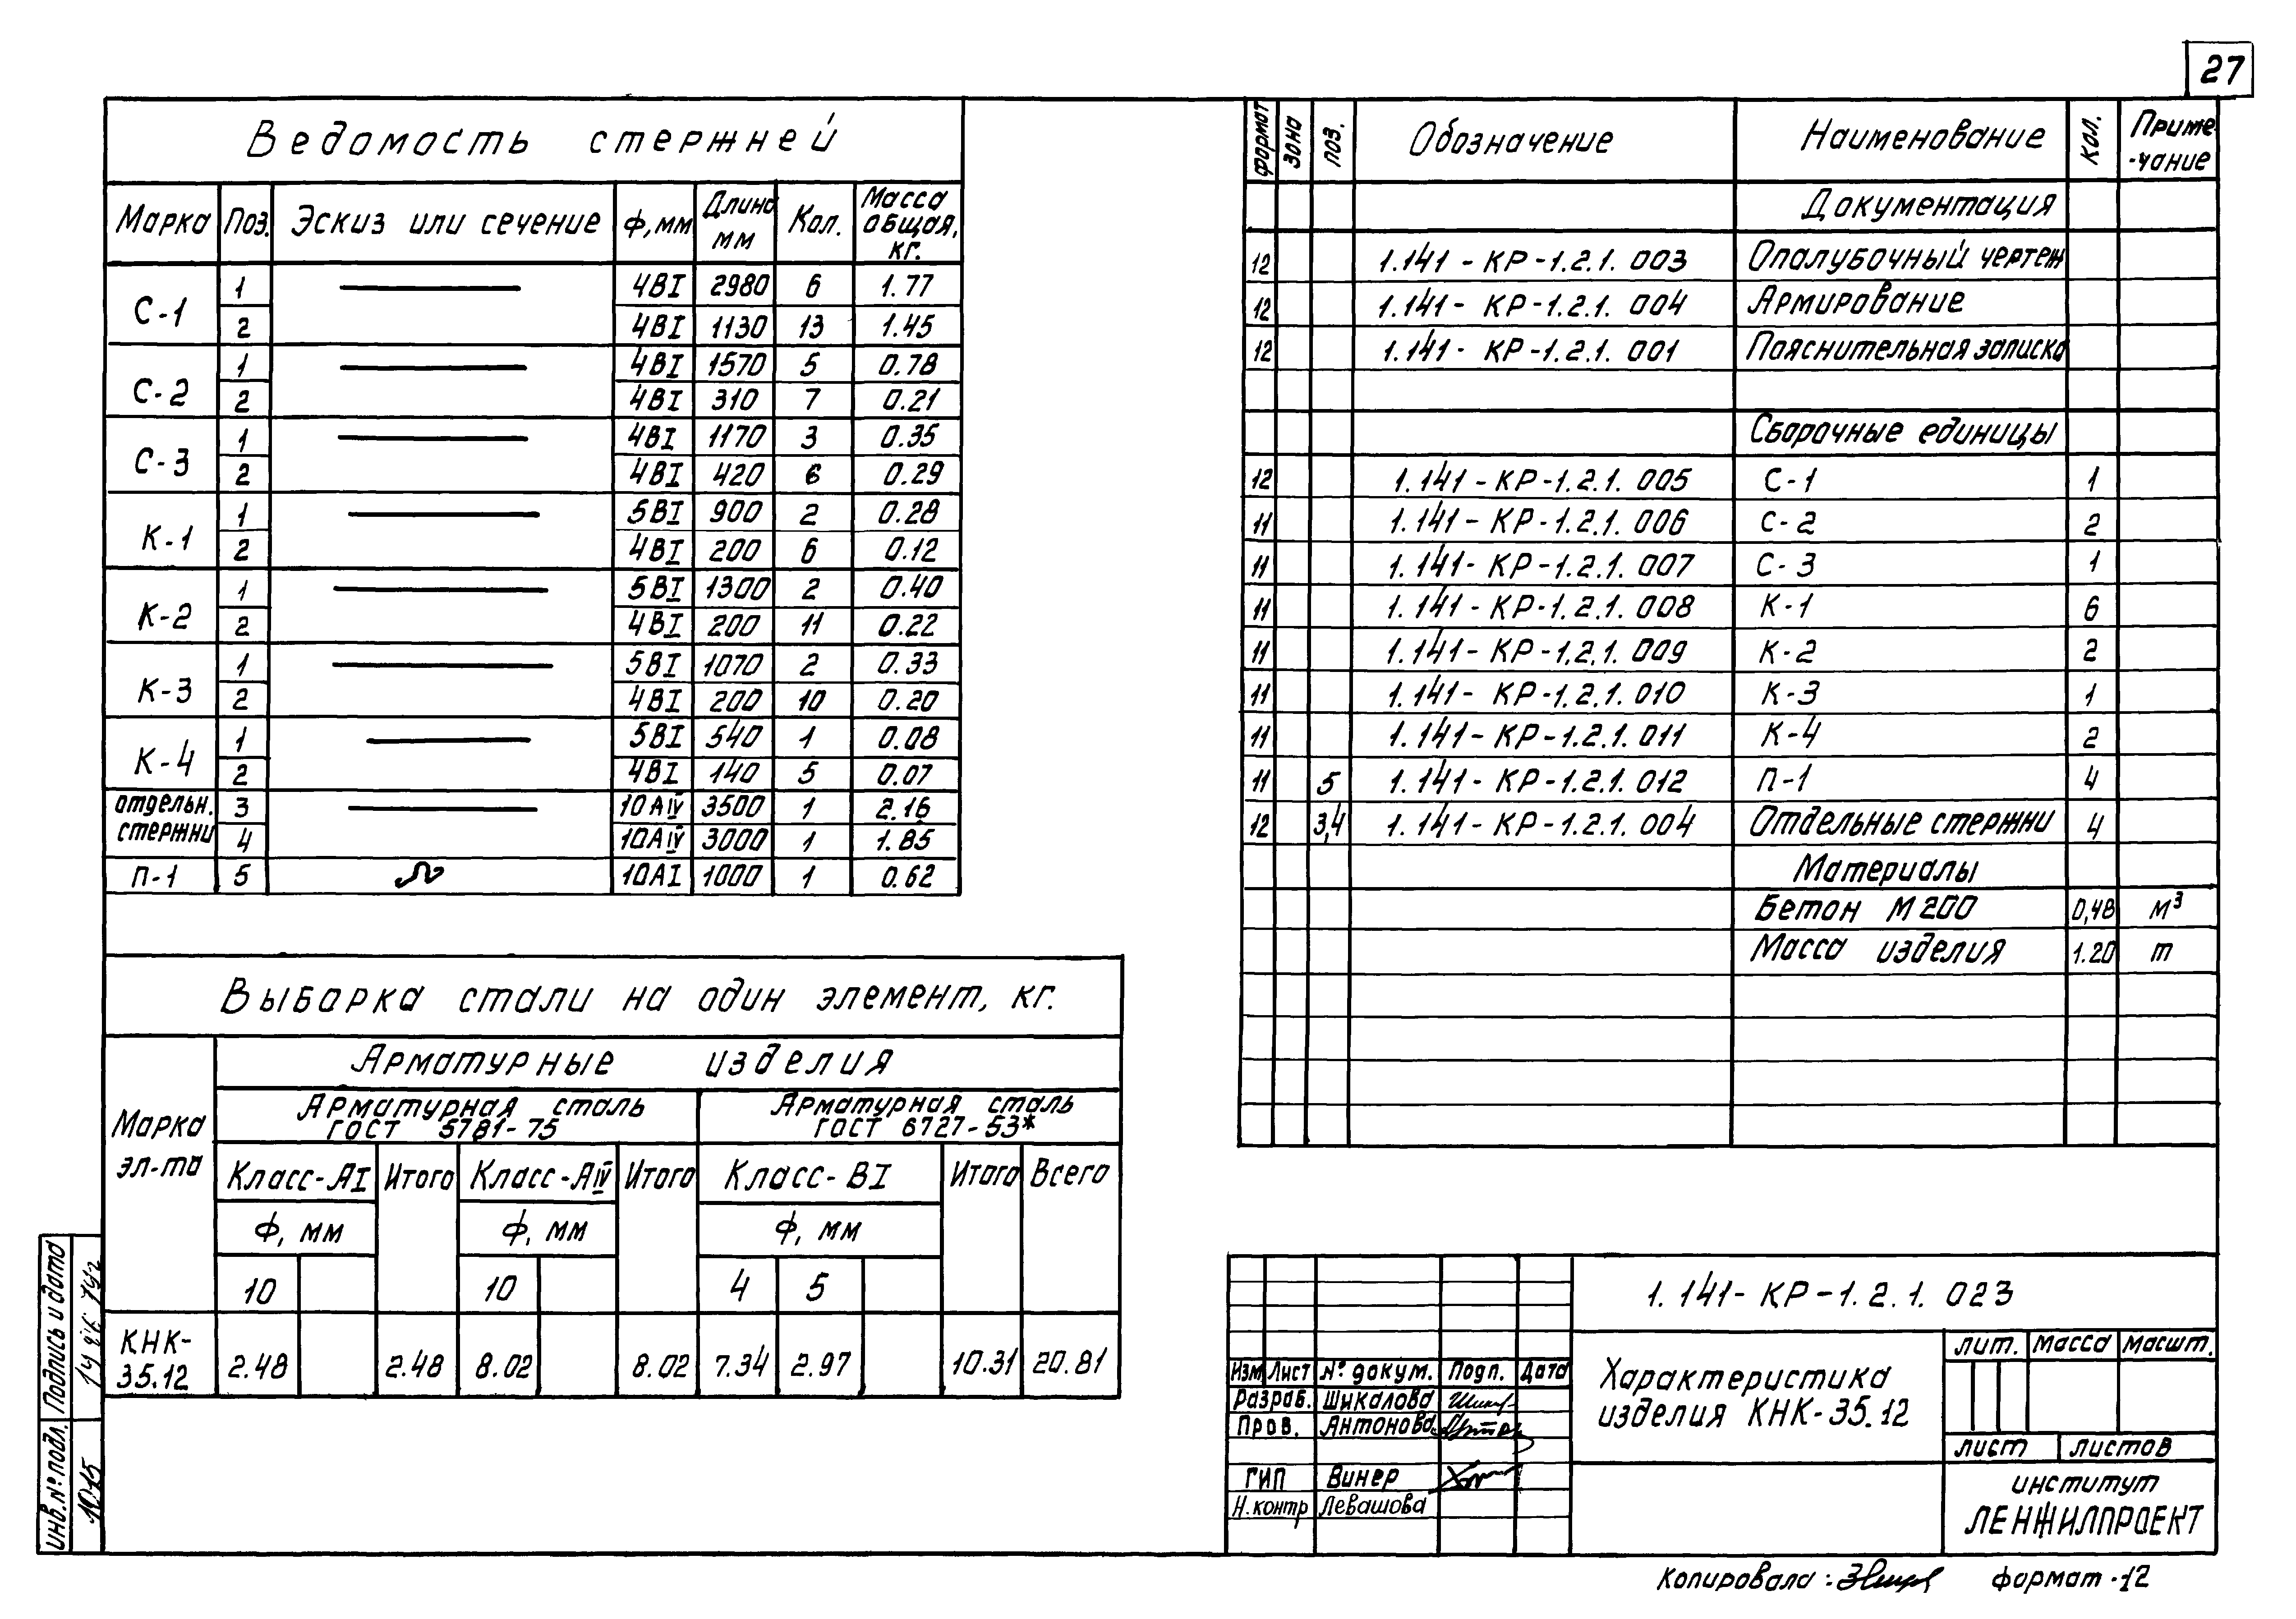 27
Ведомость стержней
Марка Поз. Эскиз или сечение ф,мм Длина мм Кол. Масса общая, кг.
С-1 1 4ВI 2980 6 1.77
2 4ВI 1130 13 1.45
С-2 1 4ВI 1570 5 0.78
2 4ВI 310 7 0.21
С-3 1 4ВI 1170 3 0.35
2 4ВI 420 6 0.29
К-1 1 5ВI 900 2 0.28
2 4ВI 200 6 0.12
К-2 1 5ВI 1300 2 0.40
2 4ВI 200 11 0.22
К-3 1 5ВI 1070 2 0.33
2 4ВI 200 10 0.20
К-4 1 5ВI 540 1 0.08
2 4ВI 140 5 0.07
отдельн. стержни 3 10АIV 3500 1 2.16
4 10АIV 3000 1 1.85
П-1 5 10АI 1000 1 0.62
Выборка стали на один элемент, кг.
Марка эл-та
Арматурные изделия
Арматурная сталь ГОСТ 5781-75
Арматурная сталь ГОСТ 6727-53*
Класс-АI Итого Класс-АIV Итого Класс-ВI Итого Всего
ф, мм ф, мм ф, мм
10 10 4 5
КНК-35.12 2.48 2.48 8.02 8.02 7.34 2.97 10.31 20.81
формат зона поз. Обозначение Наименование Кол. Приме-чание
Документация
12 1.141-КР-1.2.1. 003 Опалубочный чертеж
12 1.141-КР-1.2.1. 004 Армирование
12 1.141-КР-1.2.1. 001 Пояснительная записка
Сборочные единицы
12 1.141-КР-1.2.1. 005 С-1 1
11 1.141-КР-1.2.1. 006 С-2 2
11 1.141-КР-1.2.1. 007 С-3 1
11 1.141-КР-1.2.1. 008 К-1 6
11 1.141-КР-1.2.1. 009 К-2 2
11 1.141-КР-1.2.1. 010 К-3 1
11 1.141-КР-1.2.1. 011 К-4 2
11 5 1.141-КР-1.2.1. 012 П-1 4
12 3,4 1.141-КР-1.2.1. 004 Отдельные стержни 4
Материалы
Бетон М200 0,48 м³
Масса изделия 1.20 т
1.141-КР-1.2.1. 023
Изм Лист № докум. Подп. Дата
Разраб. Шикалова
Пров. Антонова
ГИП Винер
Н.контр Левашова
Характеристика
изделия КНК-35.12
лит. масса масшт.
лист листов
институт
ЛЕНЖИЛПРОЕКТ
Копировала:
формат-12
инв.№подл. Подпись и дата
1015